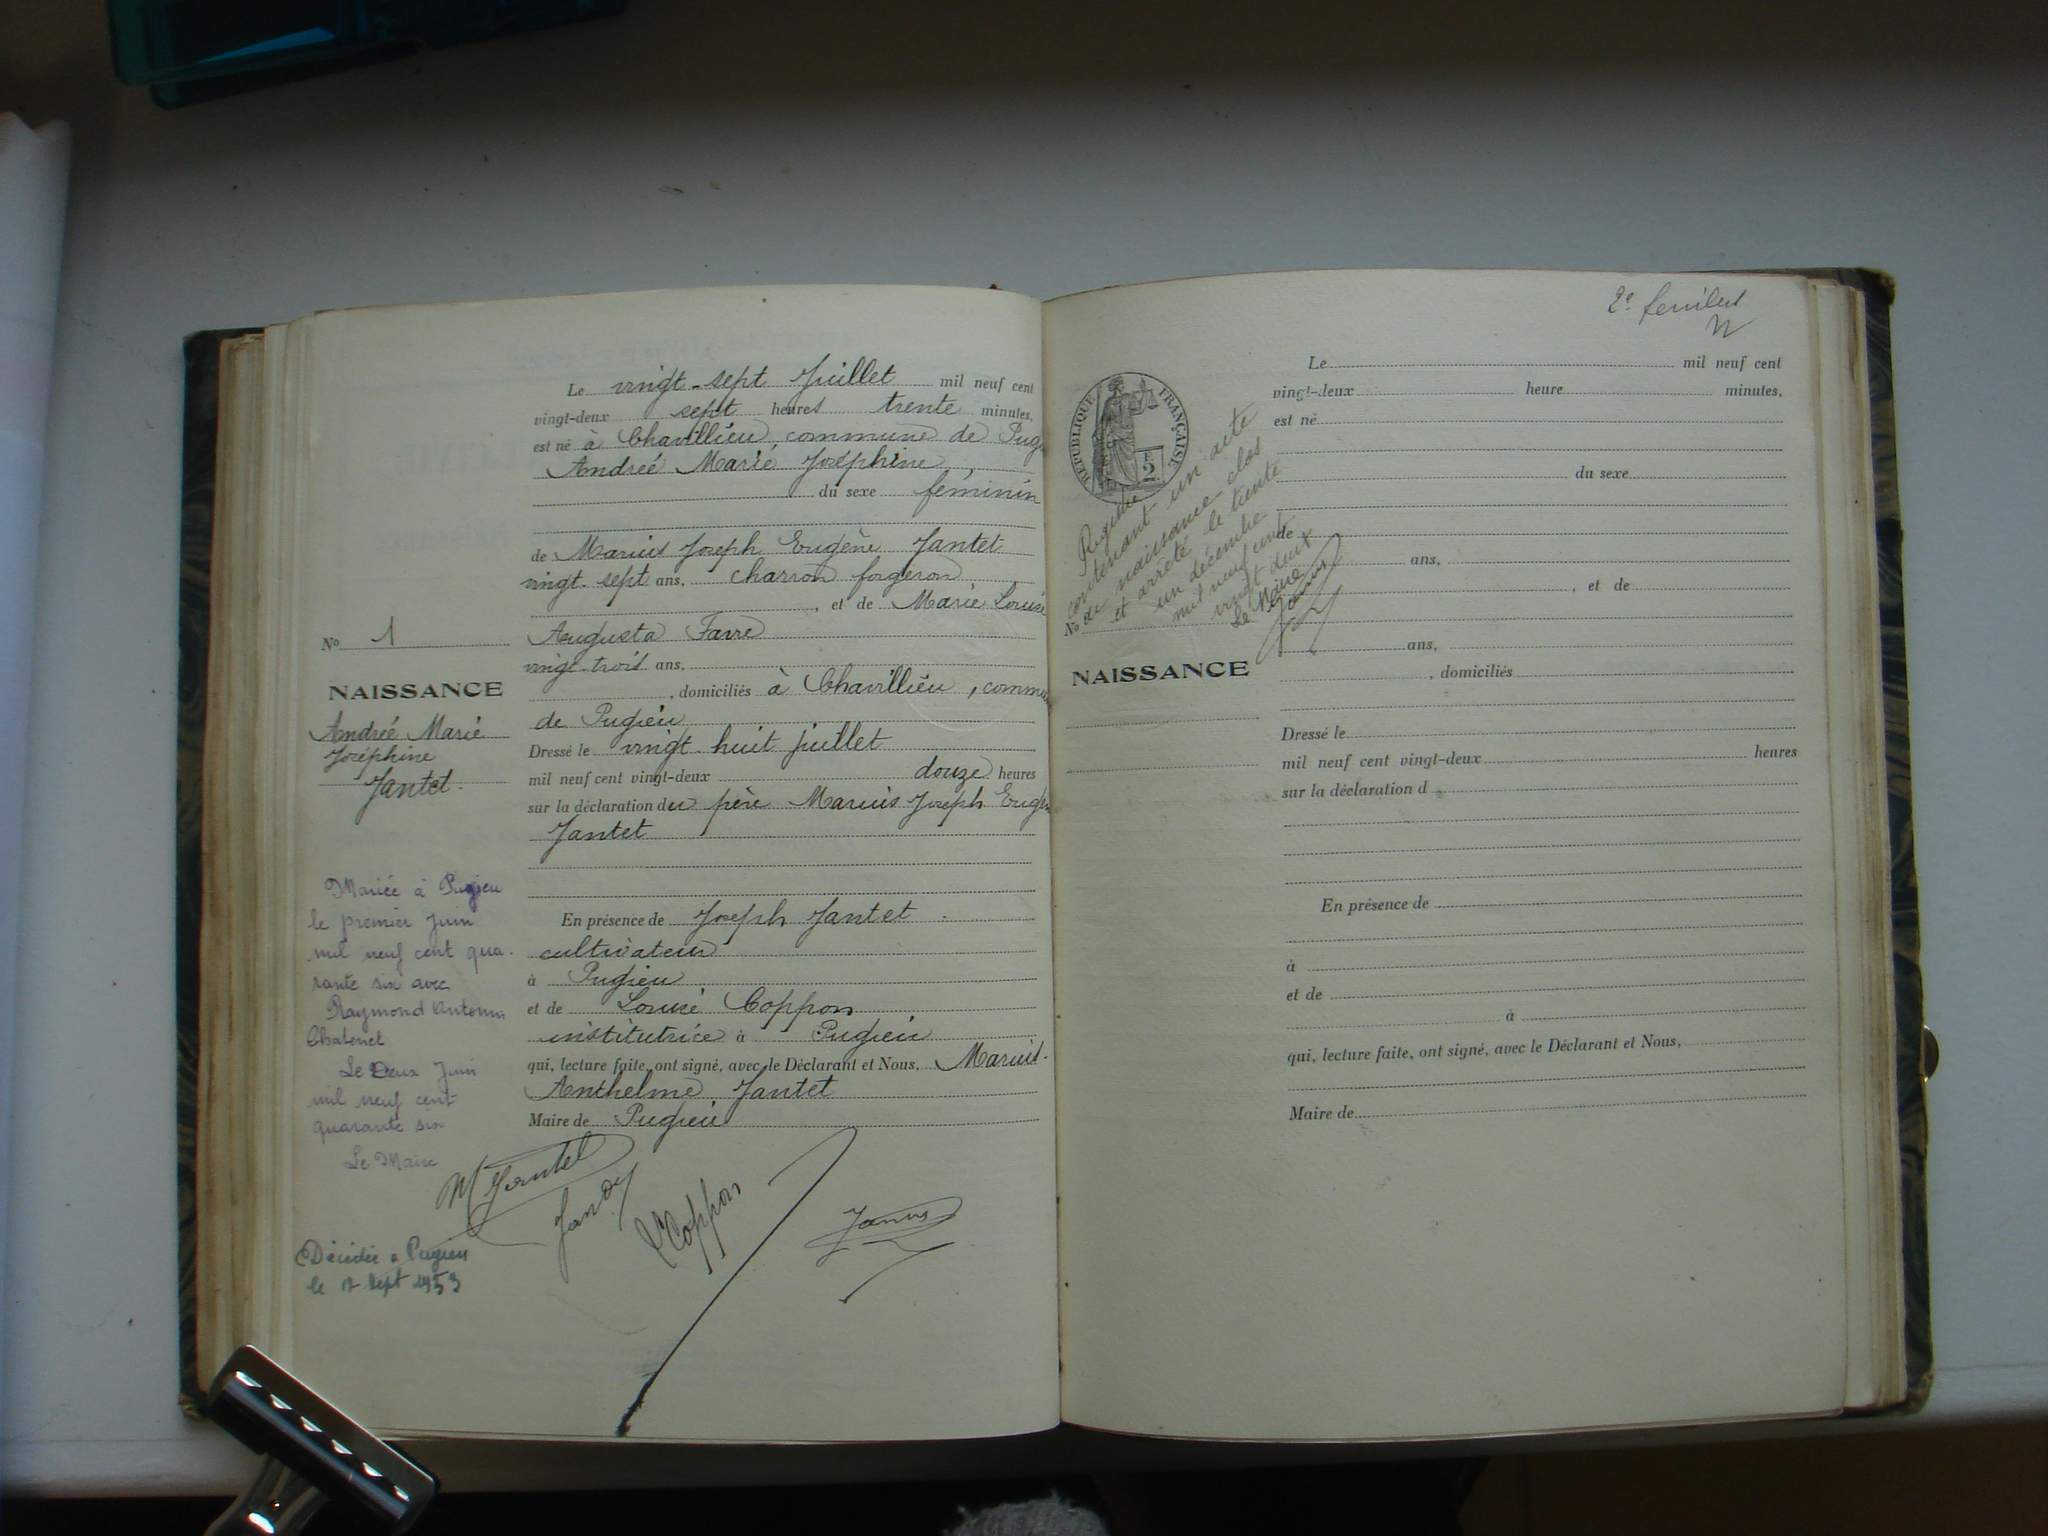 Le vingt-sept Juillet mil neuf cent
vingt-deux sept heures trente minutes,
est né à Chavillieu, commune de Pugi
Andreé Marie Joséphine,
du sexe féminin
de Marius Joseph Eugène Jantet
vingt-sept ans, charron forgeron
, et de Marie Louise
Augusta Favre
vingt-trois ans,
, domiciliés à Chavillieu, commu
de Pugieu
Dressé le vingt huit juillet
mil neuf cent vingt-deux douze heures
sur la déclaration du père Marius Joseph Eugèn
Jantet
En présence de Joseph Jantet
cultivateur
à Pugieu
et de Louise Coppon
institutrice à Pugieu
qui, lecture faite, ont signé, avec le Déclarant et Nous, Marius-
Anthelme Jantet
Maire de Pugieu
M Jantet
L Coppon
No 1
NAISSANCE
Andreé Marie
Joséphine
Jantet.
Mariée à Pugieu
le premier Juin
mil neuf cent qua-
rante six avec
Raymond Antonin
Chatenet
Le Deux Juin
mil neuf cent
quarante six
Le Maire
Décédée a Pugieu
le Sept 1953
2e
RÉPUBLIQUE FRANÇAISE
F
2
Registre
contenant un acte
de naissance clos
et arrêté le trente
un décembre
mil neuf cent
vingt deux
Le Maire
No
NAISSANCE
Le mil neuf cent
vingt-deux heure minutes,
est né
du sexe
de
ans,
, et de
ans,
, domiciliés
Dressé le
mil neuf cent vingt-deux heures
sur la déclaration d
En présence de
à
et de
à
qui, lecture faite, ont signé, avec le Déclarant et Nous,
Maire de